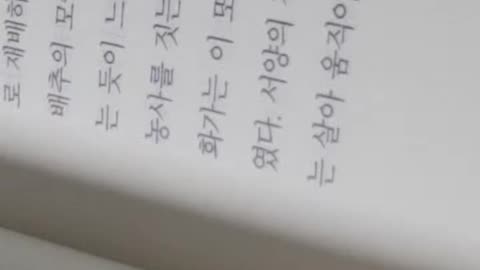 로 재배하
배추의 모
는 듯이 느
농사를 짓는
화가는 이 모
였다. 서양의
는 살아 움직이